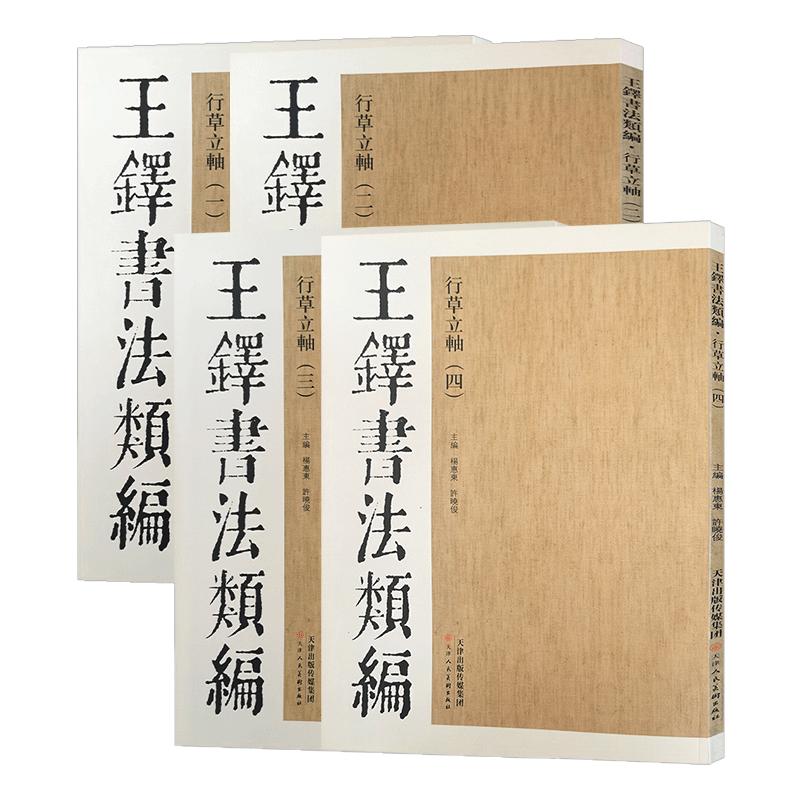 王鐸書法類編
行草立軸（一）
王鐸
行草立軸（二）
王鐸書法類編·行草立軸（二
王鐸書法類編
行草立軸（三）
主編 楊惠東 許曉俊
天津出版传媒集团
天津人民美術出版社
王鐸書法類編
行草立軸（四）
主編 楊惠東 許曉俊
天津出版传媒集团
天津人民美術出版社
王鐸書法類編·行草立軸（四）
主編 楊惠東 許曉俊
天津出版传媒集团
天津人民美術出版社